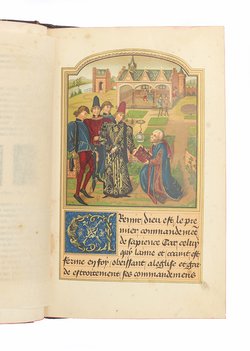 Cremir dieu est le pre
mier commandemēt
de sapience Car celuy
qui laime et craint est
ferme en foy obeissant a leglise et gar
de estroitement ses commandemens